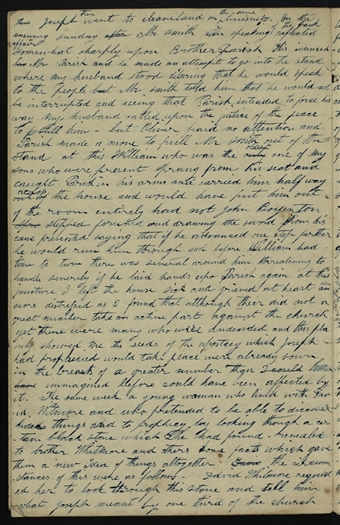 then Joseph went to cleaveland on the same business. On the
ensuing sunday after Mr smith in speaking of the bank
affair reflected
somewhat sharply upon Brother Parish This incensed
Mr Parish and he made an attempt to go into the stand
where my husband stood declaring that he would speak
to the people but Mr. smith told him that he would not
be interrupted and seeing that Parish intended to force his
way my husband called upon the justice of the peace
to but Oliver paid no attention and
Parish made a move to pull Mr smith out of the
stand at this William who was the only one of my
sons who were present sprang from his seat and
caught Parish in his arms and carried him half way
the house and would have put him out
of the room entirely had not John Boynton
stepped forward and drawing the sword from his
cane presented saying that if he advanced one step further
he would run him through and before William had
time to turn there was several around him threatening to
handle severely if he laid hands upon Parish again at this
juncture I left the house sick and grieved at heart
more distressed as I found that although there did not a
great number take an active part against the church
yet there were many who were undecided and this
showed me the seeds of the apostacy which Joseph
had prophecied would take place were already sown
in the breasts of a greater number than I could
immagined before could have been affected by
it. The same week a young woman who lived with
Whitmore and who pretended to be able to discover
things and to prophecy by looking though a cer
tain black stone which she had found revealed
to brother Whitmore and others some facts which gave
them a new Idea of things altogether. the circum
stances of this were as follows. David Whitmore request
ed her to look through this stone and tell him
what Joseph meant by one third of the church